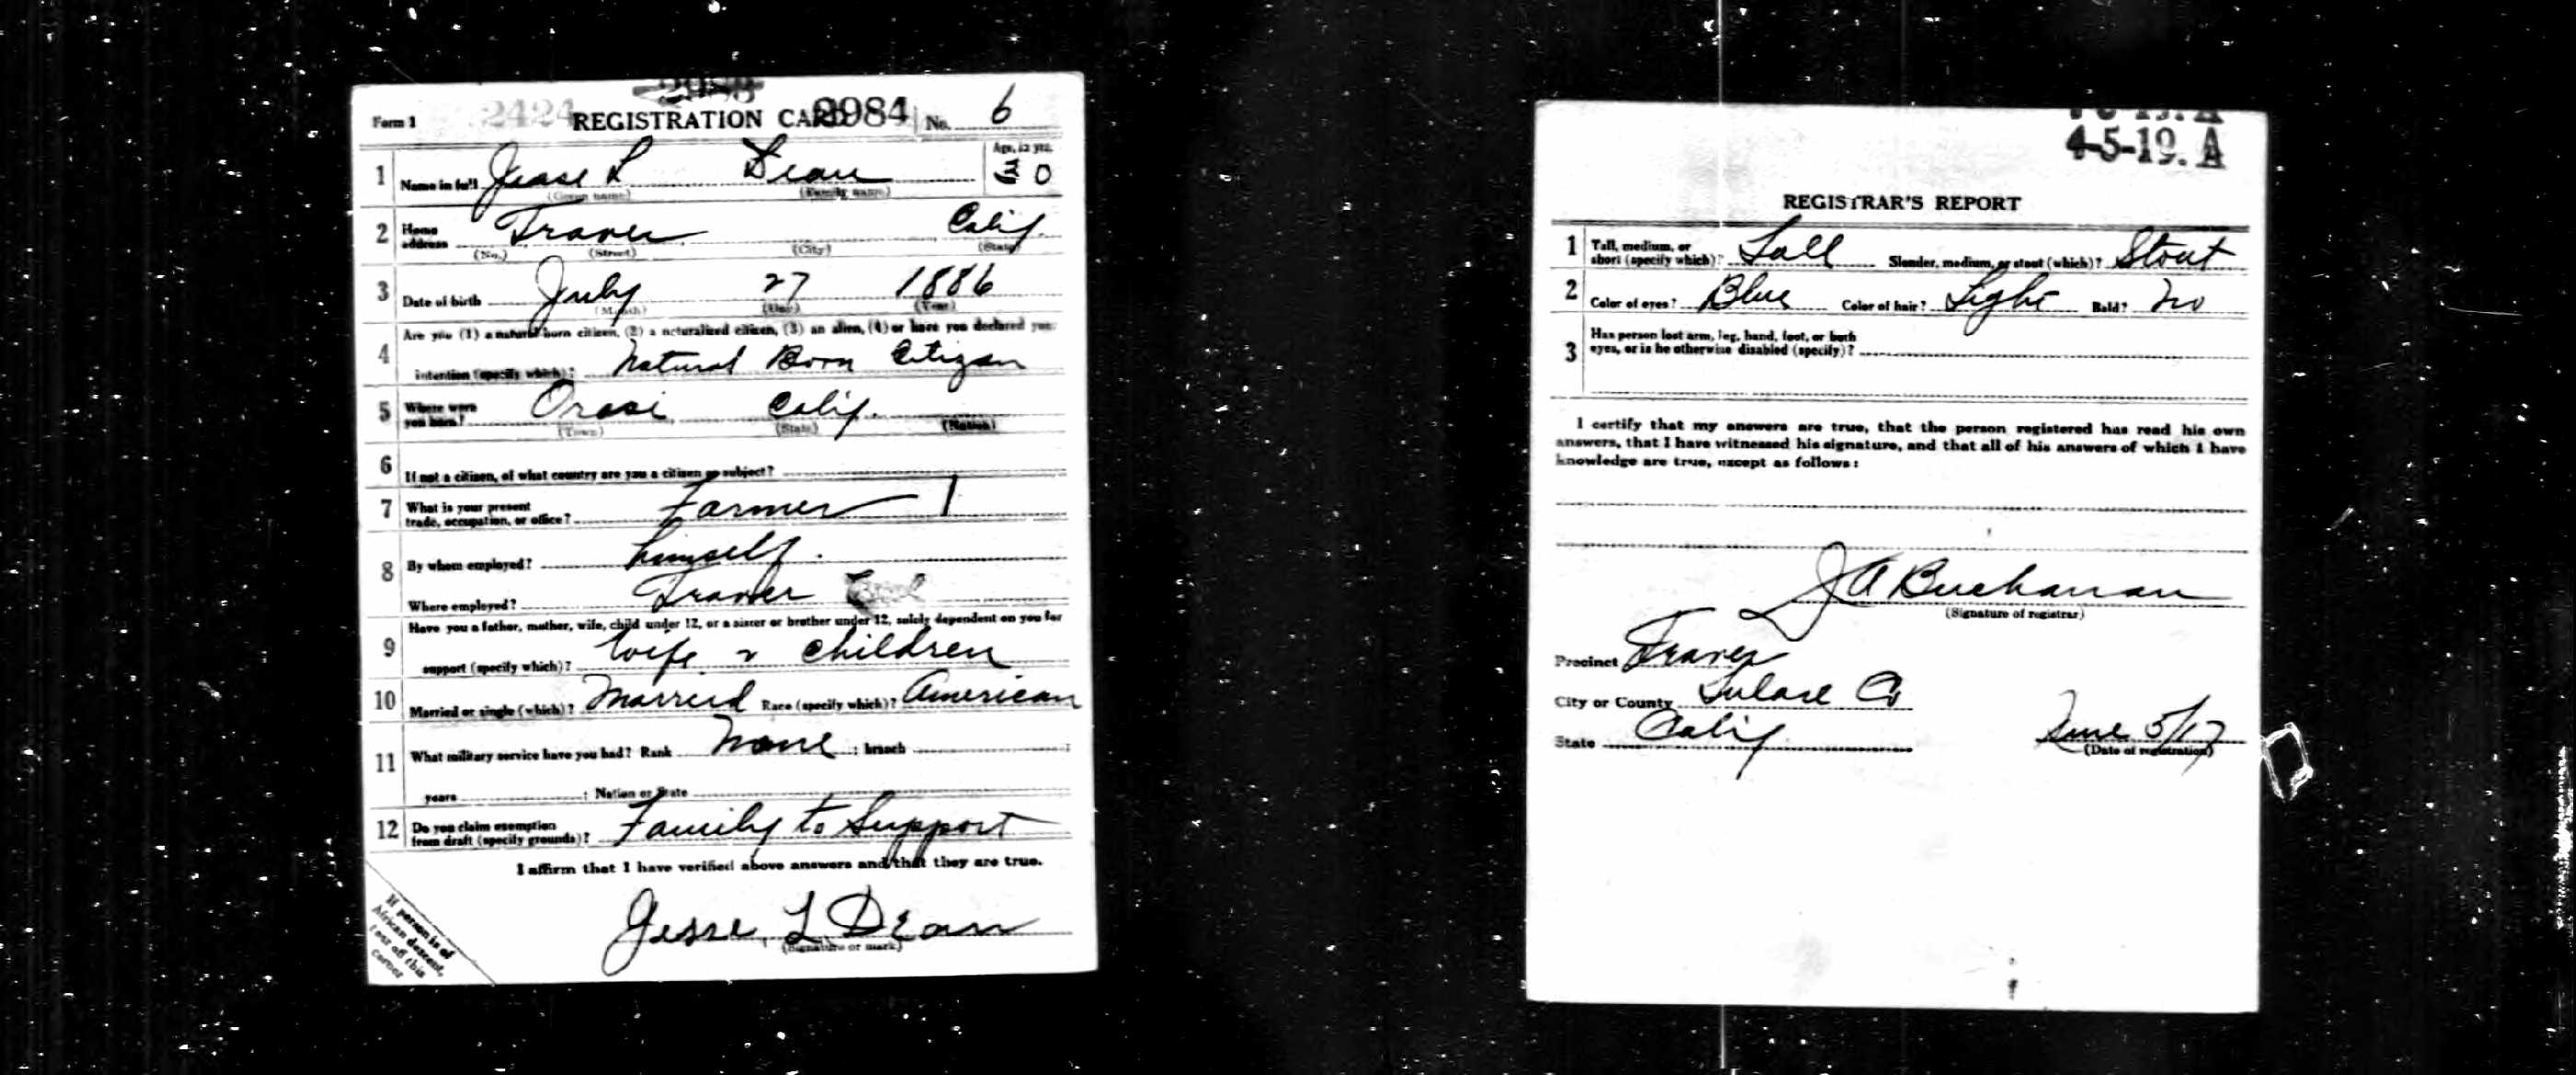 Form 1 2424 REGISTRATION CARD 2984 No. 6
1 Name in full Jesse L Dean Age, in yrs. 30
(Given name) (Family name)
2 Home address Traver Calif.
(No.) (Street) (City) (State)
3 Date of birth July 27 1886
(Month) (Day) (Year)
Are you (1) a natural born citizen, (2) a naturalized citizen, (3) an alien, (4) or have you declared your
4 intention (specify which)? Natural Born Citizan
5 Where were you born? Orosi Calif.
(Town) (State) (Nation)
6 If not a citizen, of what country are you a citizen or subject?
7 What is your present trade, occupation, or office? Farmer 1
8 By whom employed? himself.
Where employed? Traver
Have you a father, mother, wife, child under 12, or a sister or brother under 12, solely dependent on you for
9 support (specify which)? Wife & children
10 Married or single (which)? Married Race (specify which)? American
11 What military service have you had? Rank None ; branch ;
years ; Nation or State
12 Do you claim exemption from draft (specify grounds)? Family to Support
I affirm that I have verified above answers and that they are true.
Jesse L Dean
(Signature or mark)
If person is of
African descent,
tear off this
corner
4-5-19. A
REGISTRAR'S REPORT
1 Tall, medium, or short (specify which)? Tall Slender, medium, or stout (which)? Stout
2 Color of eyes? Blue Color of hair? Light Bald? No
3 Has person lost arm, leg, hand, foot, or both
eyes, or is he otherwise disabled (specify)?
I certify that my answers are true, that the person registered has read his own
answers, that I have witnessed his signature, and that all of his answers of which I have
knowledge are true, except as follows:
J A Buchanan
(Signature of registrar)
Precinct Traver
City or County Tulare Co
State Calif June 5/17
(Date of registration)